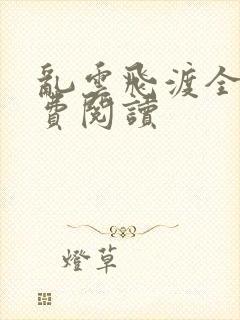 亂雲飛渡全
費閱讀
燈草